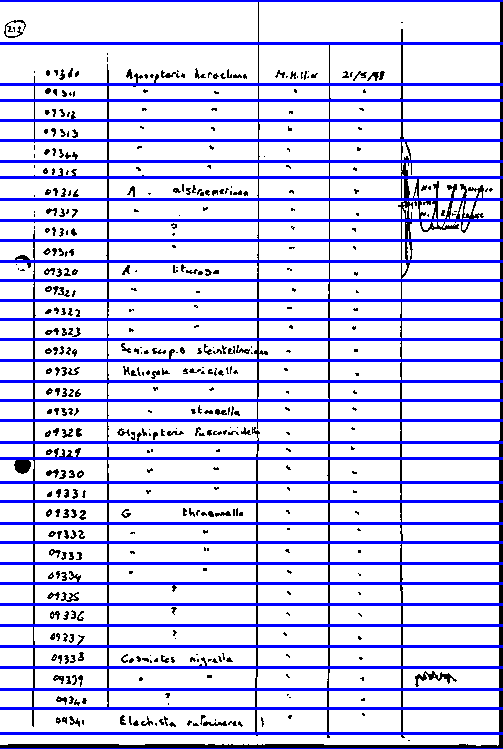 212
09310 Agonopterix heracliana M. Hillier 21/5/98
09311 " " " "
09312 " " " "
09313 " " " "
09314 " " " "
09315 " " " "
09316 A. alstroemeriana " "
09317 " " " "
09318 ? " "
09319 " "
09320 A. liturosa " "
09321 " " " "
09322 " " " "
09323 " " " "
09324 " "
09325 Heliozela sericiella " "
09326 " " " "
09327 " stanella " "
09328 Glyphipterix fuscoviridella " "
09329 " " " "
09330 " " " "
09331 " " " "
09332 G thrasonella " "
09332 " " " "
09333 " " " "
09334 " " " "
09335 ? " "
09336 ? " "
09337 ? " "
09338 Cosmiotes nigrella " "
09339 " " " "
09340 ? "
09341 Elachista rufocinerea " "